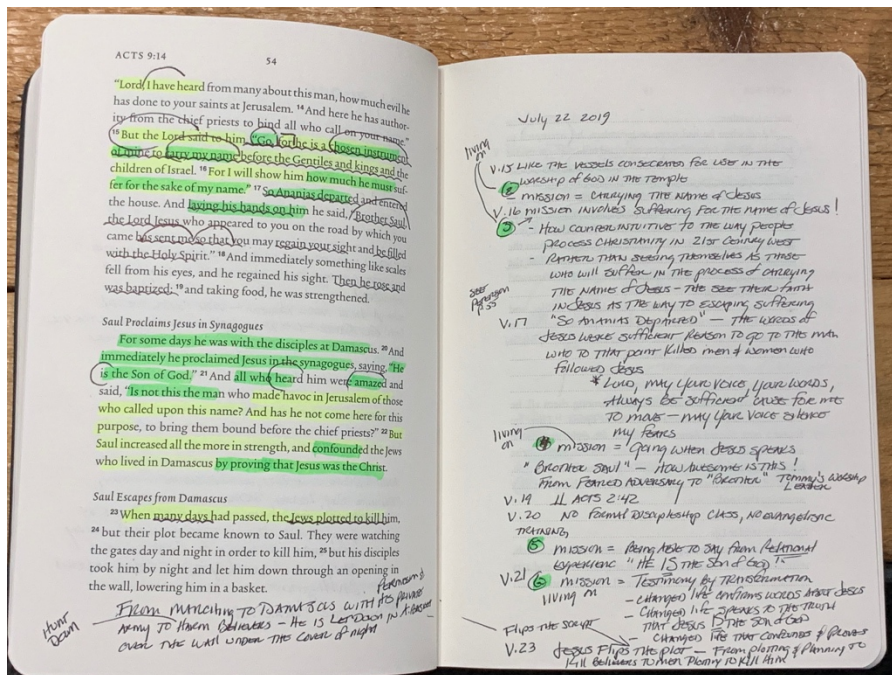 ACTS 9:14
54
“Lord, I have heard from many about this man, how much evil he
has done to your saints at Jerusalem. 14 And here he has author-
ity from the chief priests to bind all who call on your name.”
15 But the Lord said to him, “Go, for he is a chosen instrument
of mine to carry my name before the Gentiles and kings and the
children of Israel. 16 For I will show him how much he must suf-
fer for the sake of my name.” 17 So Ananias departed and entered
the house. And laying his hands on him he said, “Brother Saul,
the Lord Jesus who appeared to you on the road by which you
came has sent me so that you may regain your sight and be filled
with the Holy Spirit.” 18 And immediately something like scales
fell from his eyes, and he regained his sight. Then he rose and
was baptized; 19 and taking food, he was strengthened.
Saul Proclaims Jesus in Synagogues
For some days he was with the disciples at Damascus. 20 And
immediately he proclaimed Jesus in the synagogues, saying, “He
is the Son of God.” 21 And all who heard him were amazed and
said, “Is not this the man who made havoc in Jerusalem of those
who called upon this name? And has he not come here for this
purpose, to bring them bound before the chief priests?” 22 But
Saul increased all the more in strength, and confounded the Jews
who lived in Damascus by proving that Jesus was the Christ.
Saul Escapes from Damascus
23 When many days had passed, the Jews plotted to kill him,
24 but their plot became known to Saul. They were watching
the gates day and night in order to kill him, 25 but his disciples
took him by night and let him down through an opening in
the wall, lowering him in a basket.
HUNT
DOWN
FROM MARCHING TO DAMASCUS WITH HIS PRIVATE
ARMY TO HARM BELIEVERS - HE IS LET DOWN IN A BASKET
OVER THE WALL UNDER THE COVER OF NIGHT
July 22 2019
living
on
V.15 LIKE THE VESSELS CONSECRATED FOR USE IN THE
WORSHIP OF GOD IN THE TEMPLE
2 MISSION = CARRYING THE NAME OF JESUS
V.16 MISSION INVOLVES SUFFERING FOR THE NAME OF JESUS!
3 - HOW COUNTERINTUITIVE TO THE WAY PEOPLE
PROCESS CHRISTIANITY IN 21ST CENTURY WEST
- RATHER THAN SEEING THEMSELVES AS THOSE
WHO WILL SUFFER IN THE PROCESS OF CARRYING
THE NAME OF JESUS - THE SEE THEIR FAITH
IN JESUS AS THE WAY TO ESCAPING SUFFERING
SEE
PETERSON
V.17 "SO ANANIAS DEPARTED" - THE WORDS OF
JESUS WERE SUFFICIENT REASON TO GO TO THE MAN
WHO TO THAT POINT KILLED MEN & WOMEN WHO
FOLLOWED JESUS
* LORD, MAY YOUR VOICE, YOUR WORDS,
ALWAYS BE SUFFICIENT CAUSE FOR ME
TO MOVE - MAY YOUR VOICE SILENCE
MY FEARS
living
on
4 MISSION = GOING WHEN JESUS SPEAKS
"BROTHER SAUL" - HOW AWESOME IS THIS!
FROM FEARED ADVERSARY TO "BROTHER" TOMMY'S WORSHIP
LEADER
V.19 ACTS 2:42
V.20 NO FORMAL DISCIPLESHIP CLASS, NO EVANGELISTIC
TRAINING
5 MISSION = BEING ABLE TO SAY FROM RELATIONAL
EXPERIENC "HE IS THE SON OF GOD!"
V.21 6 MISSION = TESTIMONY BY TRANSFORMATION
living on
- CHANGED LIFE CONFIRMS WORDS ABOUT JESUS
- CHANGED LIFE SPEAKS TO THE TRUTH
THAT JESUS IS THE SON OF GOD
- CHANGED LIFE THAT CONFOUNDS & PROVES
FLIPS THE SCRIPT
V.23 JESUS FLIPS THE PLOT - FROM PLOTTING & PLANNING TO
KILL BELIEVERS TO MEN PLOTTING TO KILL HIM